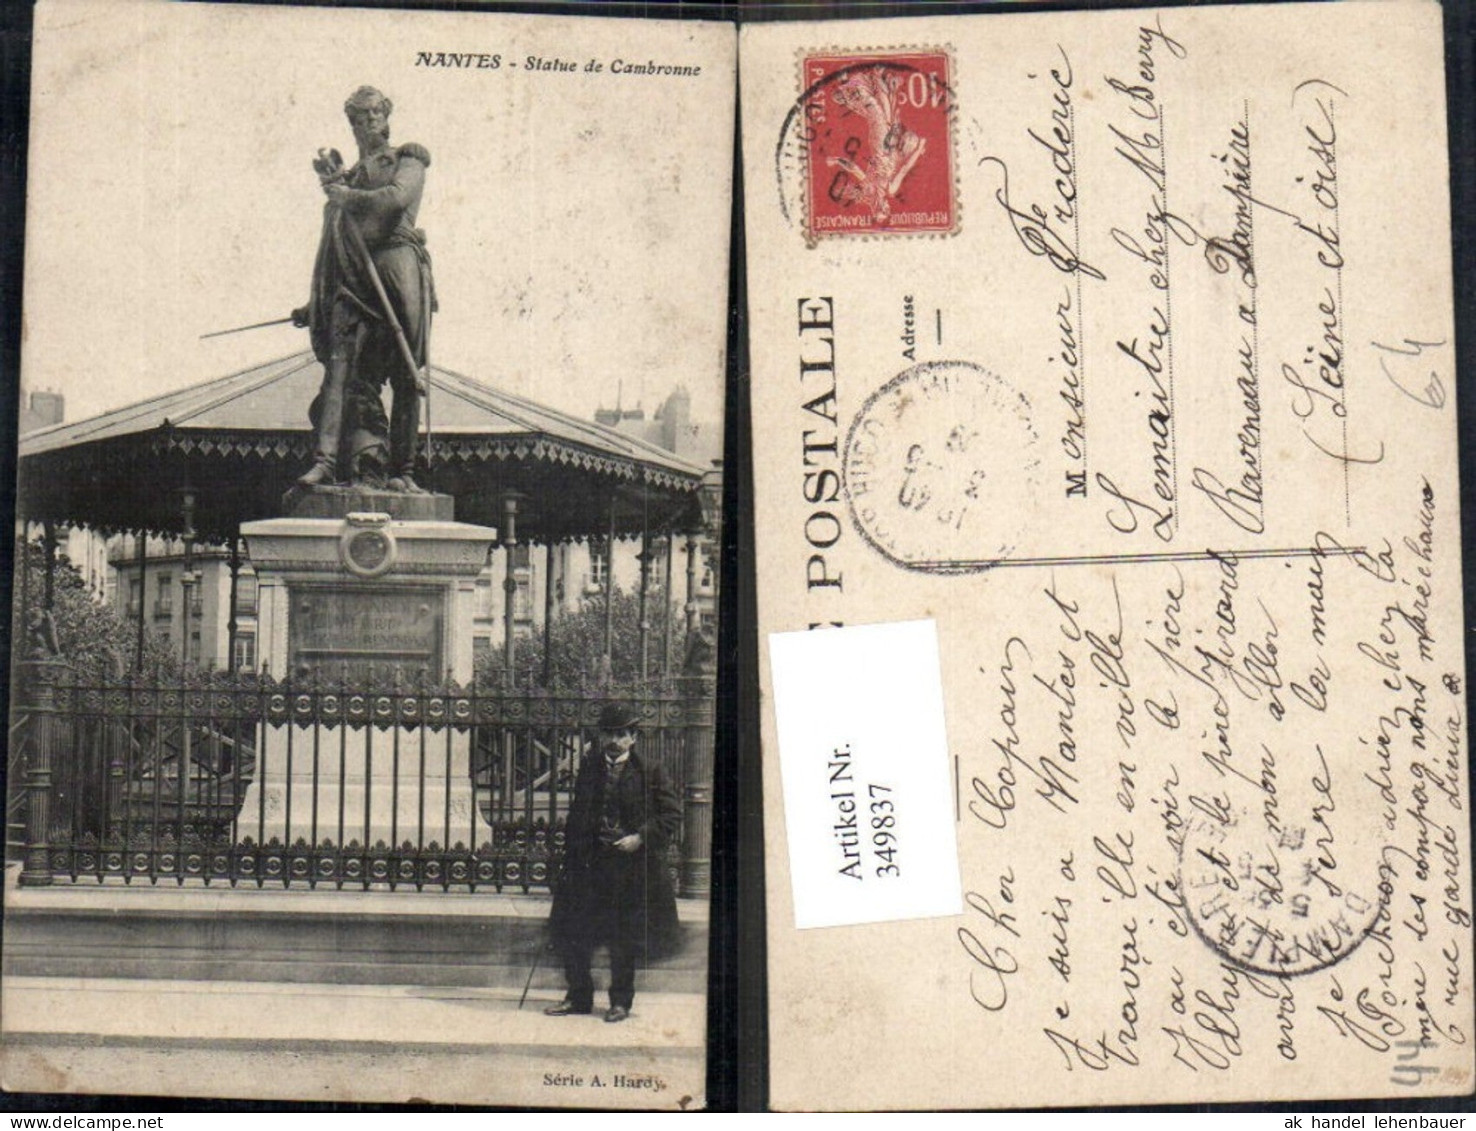 NANTES - Statue de Cambronne
Série A. Hardy.
POSTALE
Adresse
10c
POSTES
REPUBLIQUE FRANÇAISE
Monsieur Frederic
Lemaitre chez M Berry
Raveneau a Dampière
(Seine et oise)
64
Cher Copain
Je suis a Nantes et
travaille en ville
J'ai été voir le père
et le père Girond
avant de mon aller
Je serre la main
chez la
mère les compagnons maréchaux
6 rue garde dieu
44
DAMPIERRE
Artikel Nr.
349837
ak handel lehenbauer